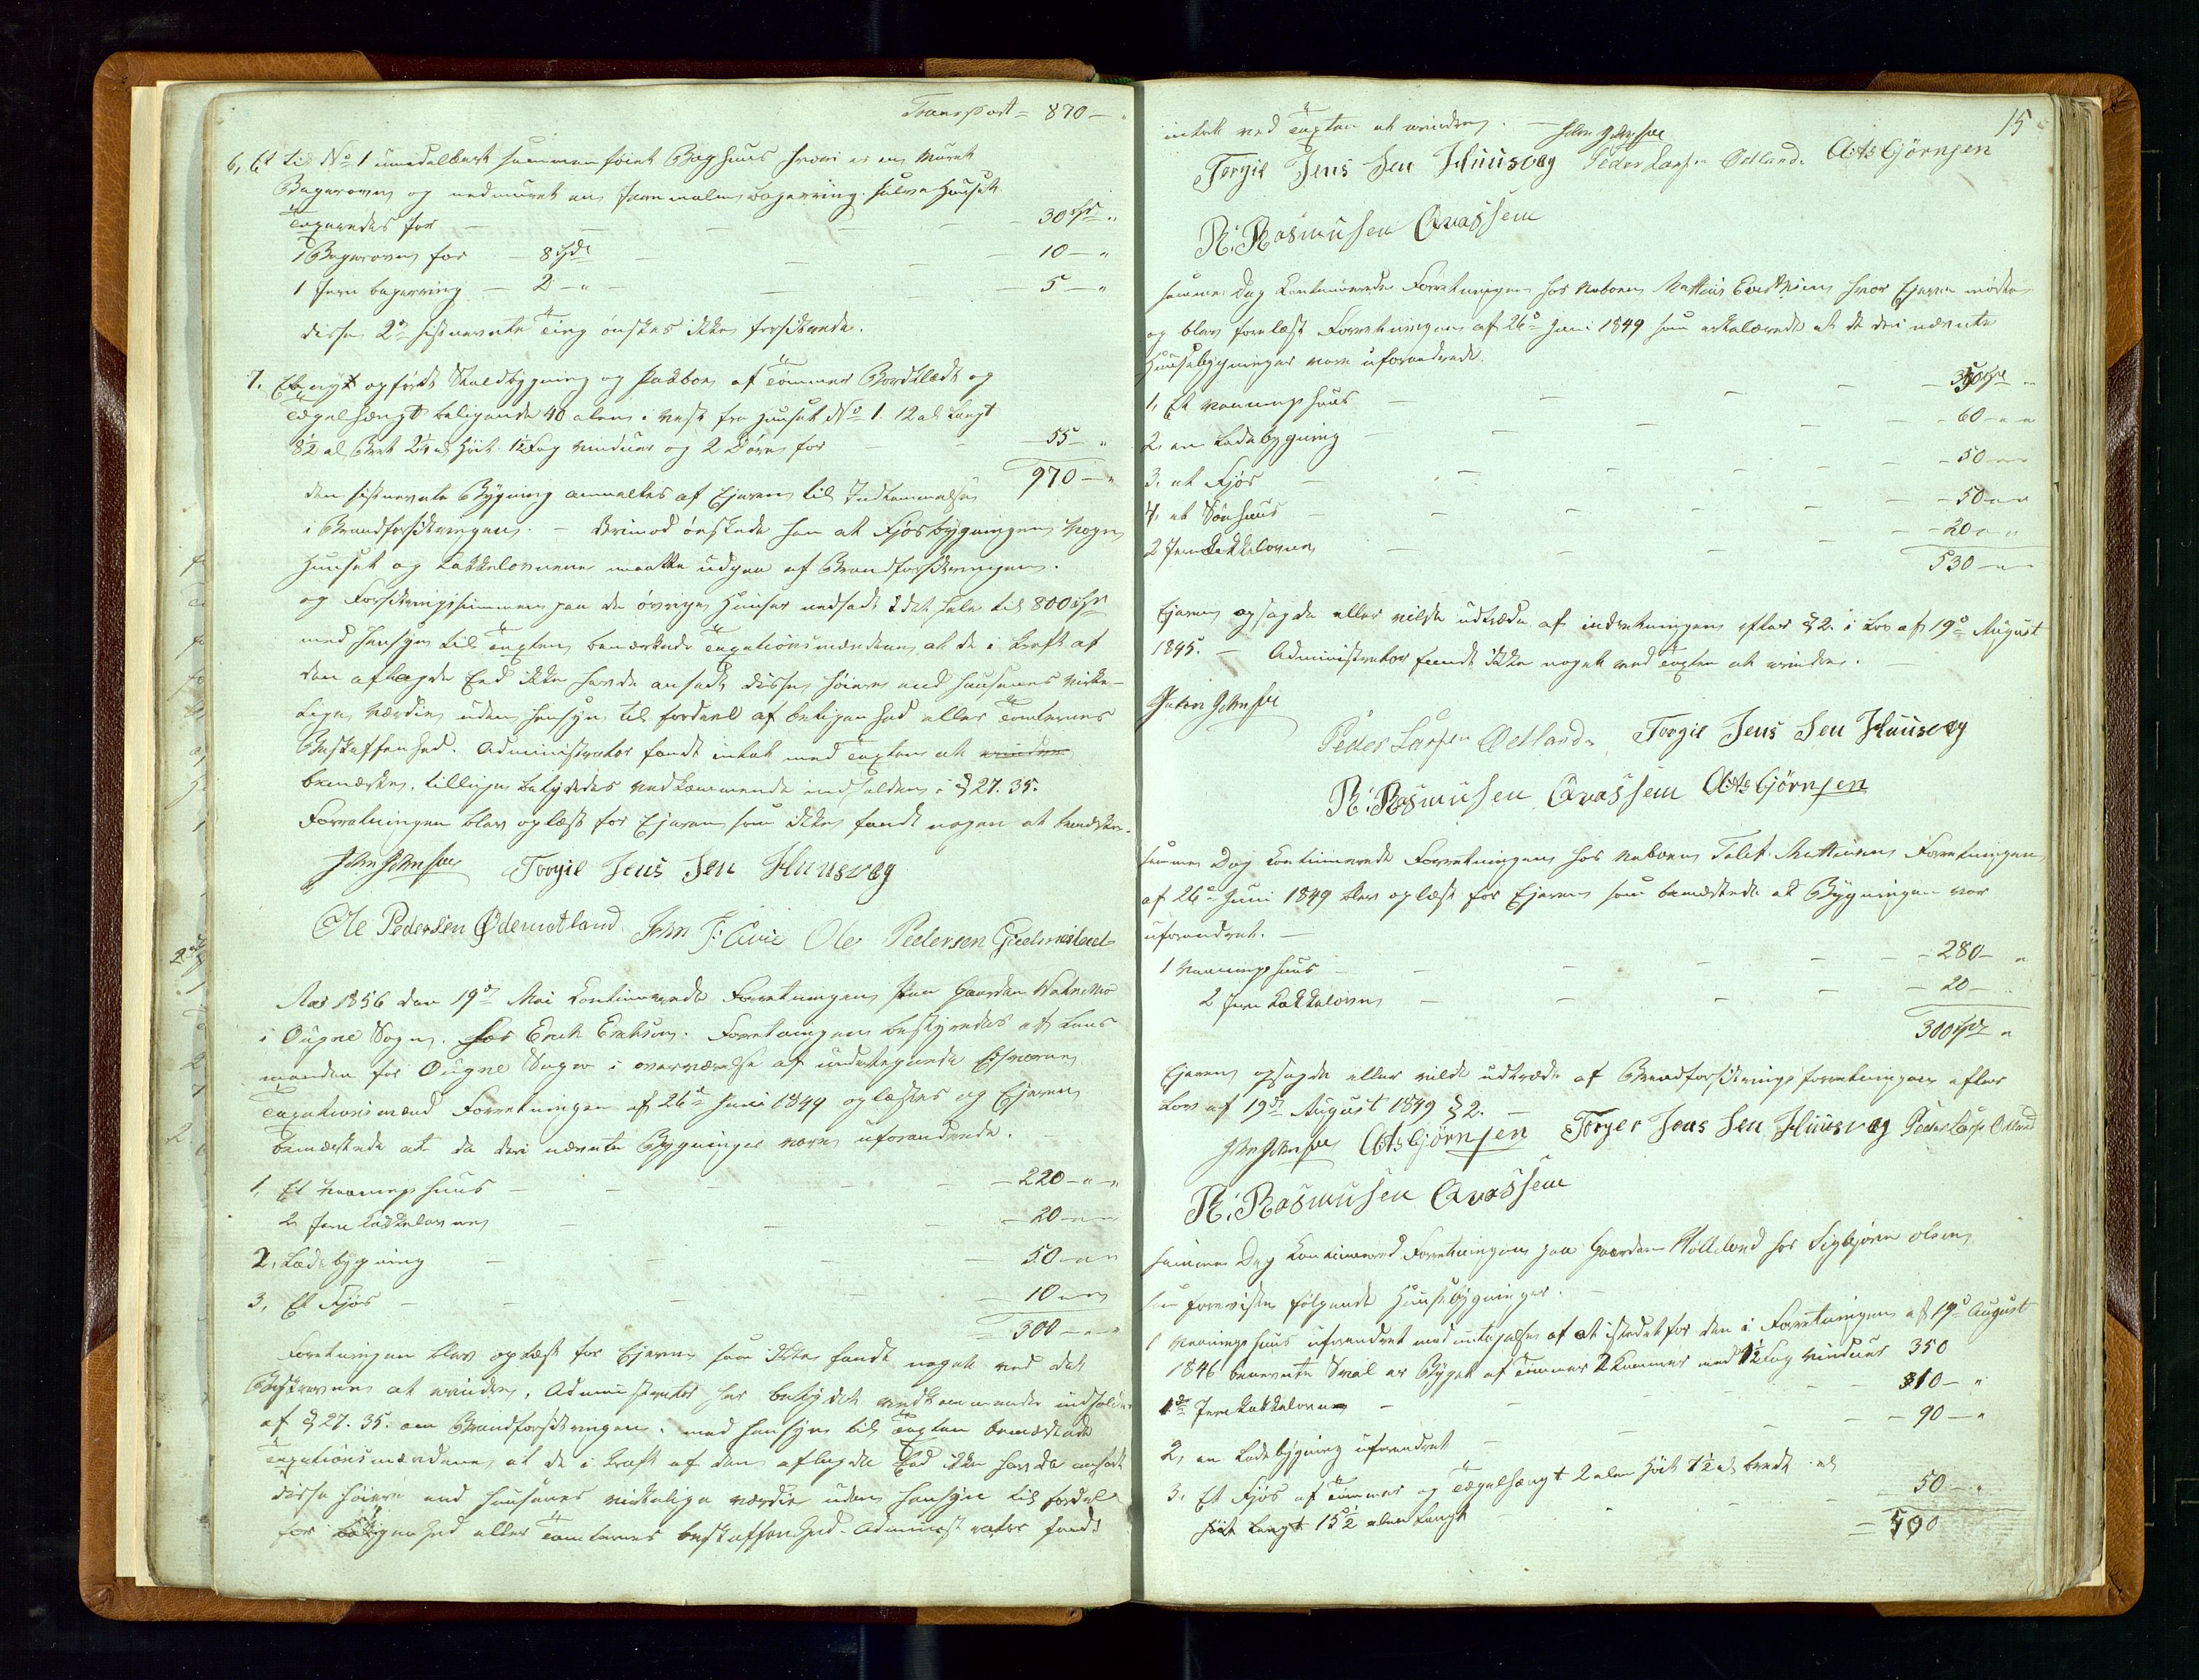 Transport = 870 – "
6, Et til No 1 umidelbart sammenføiet Baghuus hvori er en Muret
Bagerovn og nedmuret en Jernmalm bagerring. selve Huuset
Taxeredes for – – – – 30 Spd "
1 Bagerovn for – 8 Spd – – 10 – "
1 Jern bagerring – 2 – " – – 5 – "
disse 2de sidstnevnte Ting ønskes ikke forsikrede.
7. En nyt opført Stuebygning og af Tømmer Bordklædt og
Tegelhængt beligende 40 alen i Vest fra Huuset No 1. 12 al. Langt
8½ al. Bret 2¼ al. Høit. 1½ Fag Vinduer og 2 Døre for – 55 – "
970 – "
den sidstnevnte Bygning anmeltes af Ejeren til Indtemmelse
i Brandforsikringen. – Derimod ønskede han at Fjøsbygningen Vogn
Huuset og Kakkelovnene maatte udgaa af Brandforsikringen.
og Forsikringssummen paa de øvrige Huuser nedsadt i det hele til 800 Spd
med hensyn til Taxten bemærkede Taxationsmændene at de i Kraft af
den aflagde Eed ikke havde ansadt disse høiere end husenes virke-
lige Værdie uden hensyn til fordeel af beligenhed eller Tomternes
Beskaffenhed. Administrator fandt intet med Taxten at erindre
bemærke, tillige betydedes vedkommende indholden i § 27. 35.
Forretningen blev oplæst for Ejeren som ikke fandt noget at bemærke.
John Johnsen Torgie Jens Sen Huusvæg
Ole Pedersen Ødemotland John J: Ole Pedersen
Aar 1856 den 19de Mai Kontinuerede Forretningen paa Gaarden
i Ougne Sogn. hos Erik Eriksen. Forretningen bestyredes af Lens
manden for Ougne Sogn i overværelse af undertegnede Edsvorne
Taxationsmænd Forretningen af 26de Juni 1849 oplæstes og Ejeren
bemærkede at de deri nævnte Bygninger vare uforandrede.
1, Et Vaaningshuus – – – – 220 – " – "
2 Jern Kakkelovne – – – 20 – " –
2, Ladebygning – – – – 50 – " –
3, Et Fjøs – – – – 10 – " –
= 300 – " – "
Forretningen blev oplæst for Ejeren som ikke fandt noget ved det
Beskrevne at erindre. Administrator har betydet vedkommende indholden
af § 27. 35. om Brandforsikringen. med hensyn til Taxten bemærkede
Taxationsmændene at de i Kraft af den aflagde Eed ikke havde ansadt
disse høiere end husenes virkelige værdie uden hensyn til fordel
for beligenhed eller Tomternes beskaffenhed. Administrator fandt
15
intet ved Taxten at erindre. – John Johnsen
Torgie Jens Sen Huusvæg Peder Larsen Øetland
R: Rasmusen Qvassem
samme Dag Kontinuerede Forretningen hos Naboen Mattias hvor Ejeren mødte
og blev forelæst Forretningen af 26de Juni 1849 som erkelærede at de deri nævnte
Huusebygninger vare uforandrede.
1, Et Vaaningshuus – – – – 350 Spd "
2. en Ladebygning – – – – 60 – " "
3. et Fjøs – – – – 50 – " –
4, et Sønhuus – – – – 50 – " –
2 Jernkakkelovne – – – – 20 " "
530 – "
Ejeren opsagde eller vilde udtræde af indretningen efter § 2. i Lov af 19de August
1845. – Administrator fandt ikke noget ved Taxten at erindre.
John Johnsen
Peder Larsen Oetland Torgie Jens Sen Huusvæg
R: Rasmusen Qvassem
samme Dag Kontinuerede Forretningen hos Naboen Tolet Mattiesen Forretningen
af 26de Juni 1849 blev oplæst for Ejeren som bemærkede at Bygningen var
uforandret. –
1 Vaaningshuus – – – – 280 – "
2 Jern Kakkelovne – – – – 20 – "
300 Spd "
Ejeren opsagde eller vilde udtræde af Brandforsikringsforretningen efter
Lov af 19de August 1849 § 2. –
John Johnsen Torger Jens Sen Huusvæg Peder Larsen Oetland
R: Rasmusen Qvassem
samme Dag Kontinuered Forretningen paa Gaarden Holleland hos Sigbjørn Olsen
som foreviste følgende Huusebygninger. –
1 Vaaningshuus uforandret med undtagelse af at istedetfor den i Forretningen af 19de August
1846 benevnte Sval er Bygget af Tømmer 2 Kammer med 1½ Fag Vinduer 350
1de Jernkakkelovn – – – – 10 – "
2, en Ladebygning uforandret – – – 90 – "
3. Et Fjøs af Tømmer og Tegelhængt 2 alen høit 7½ al. bredt
høit Langt 15½ alen Langt – – – 50 – "
= 500